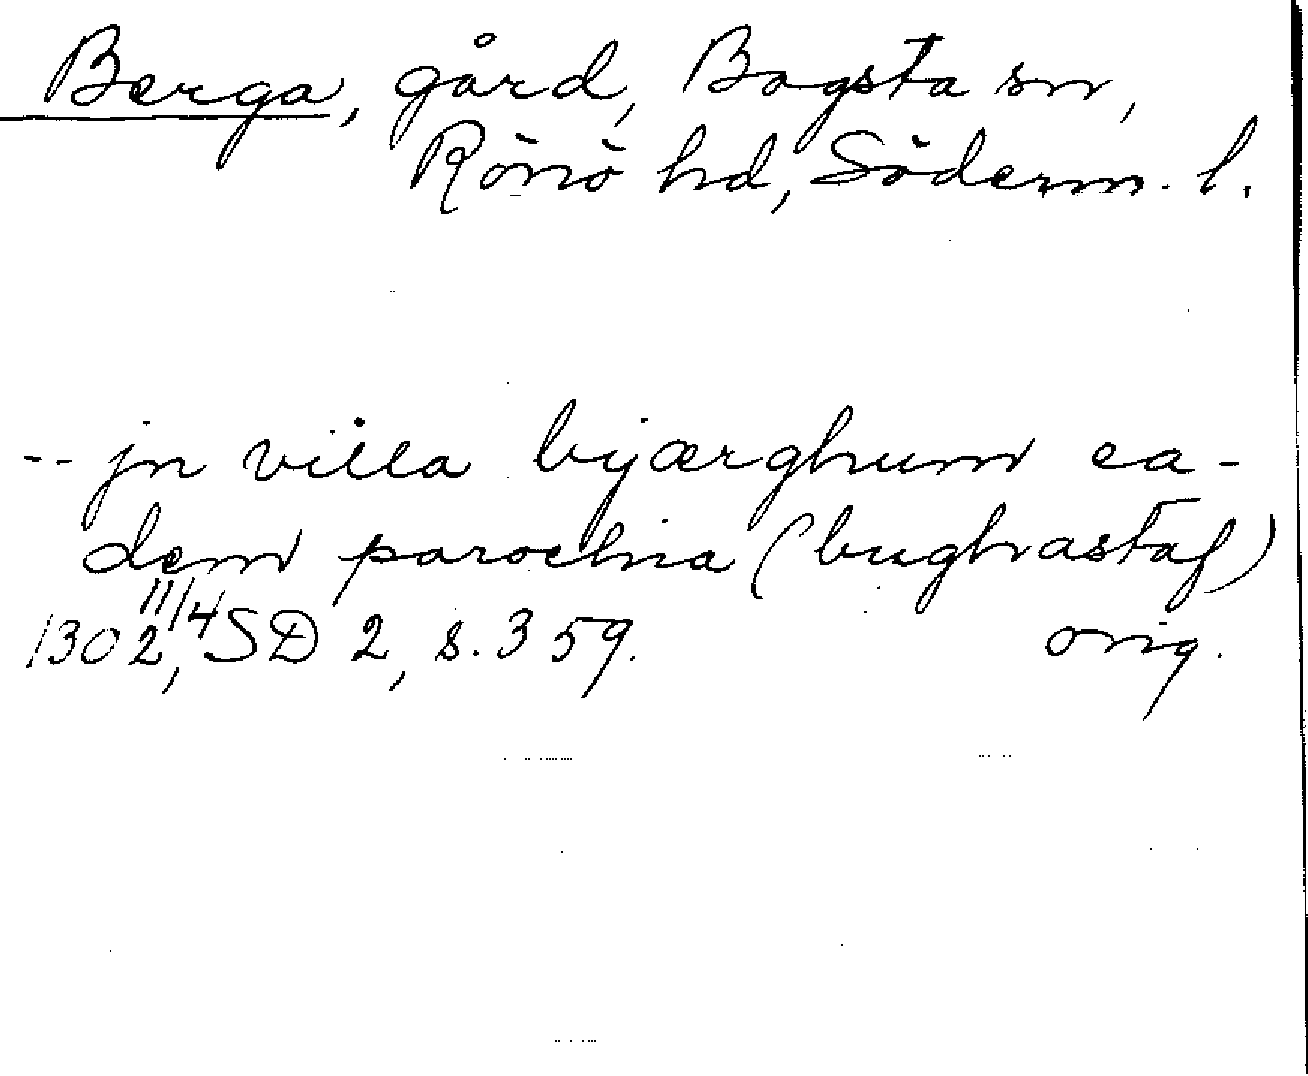 Berga, gård, Bogsta sn,
Rönö hd, Söderm. l.
-- jn villa bijærghum ea-
dem parochia (bughastaf)
1302 11/4, SD 2, s. 359. orig.